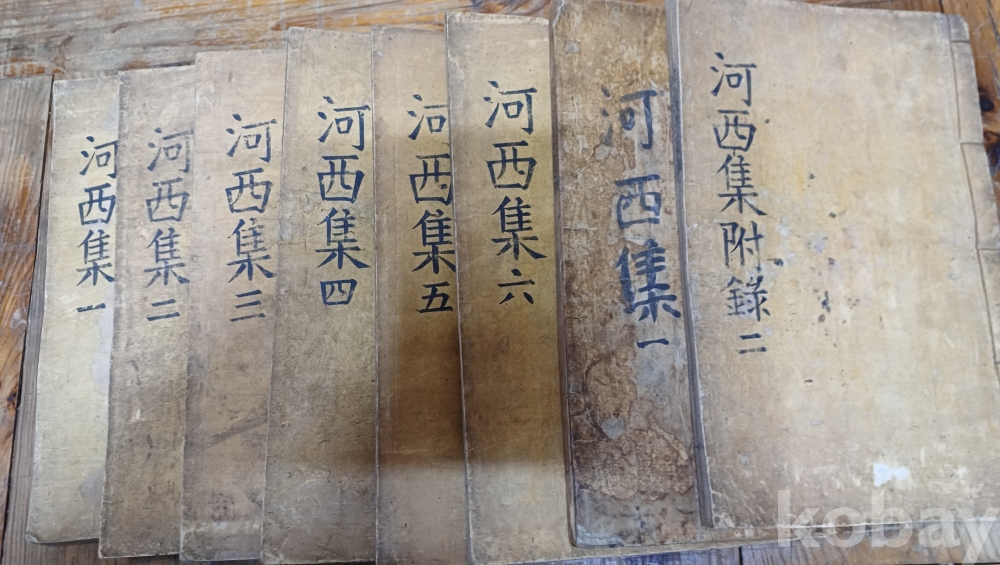 河西集一
河西集二
河西集三
河西集四
河西集五
河西集六
河西集一
河西集附錄二
kobay